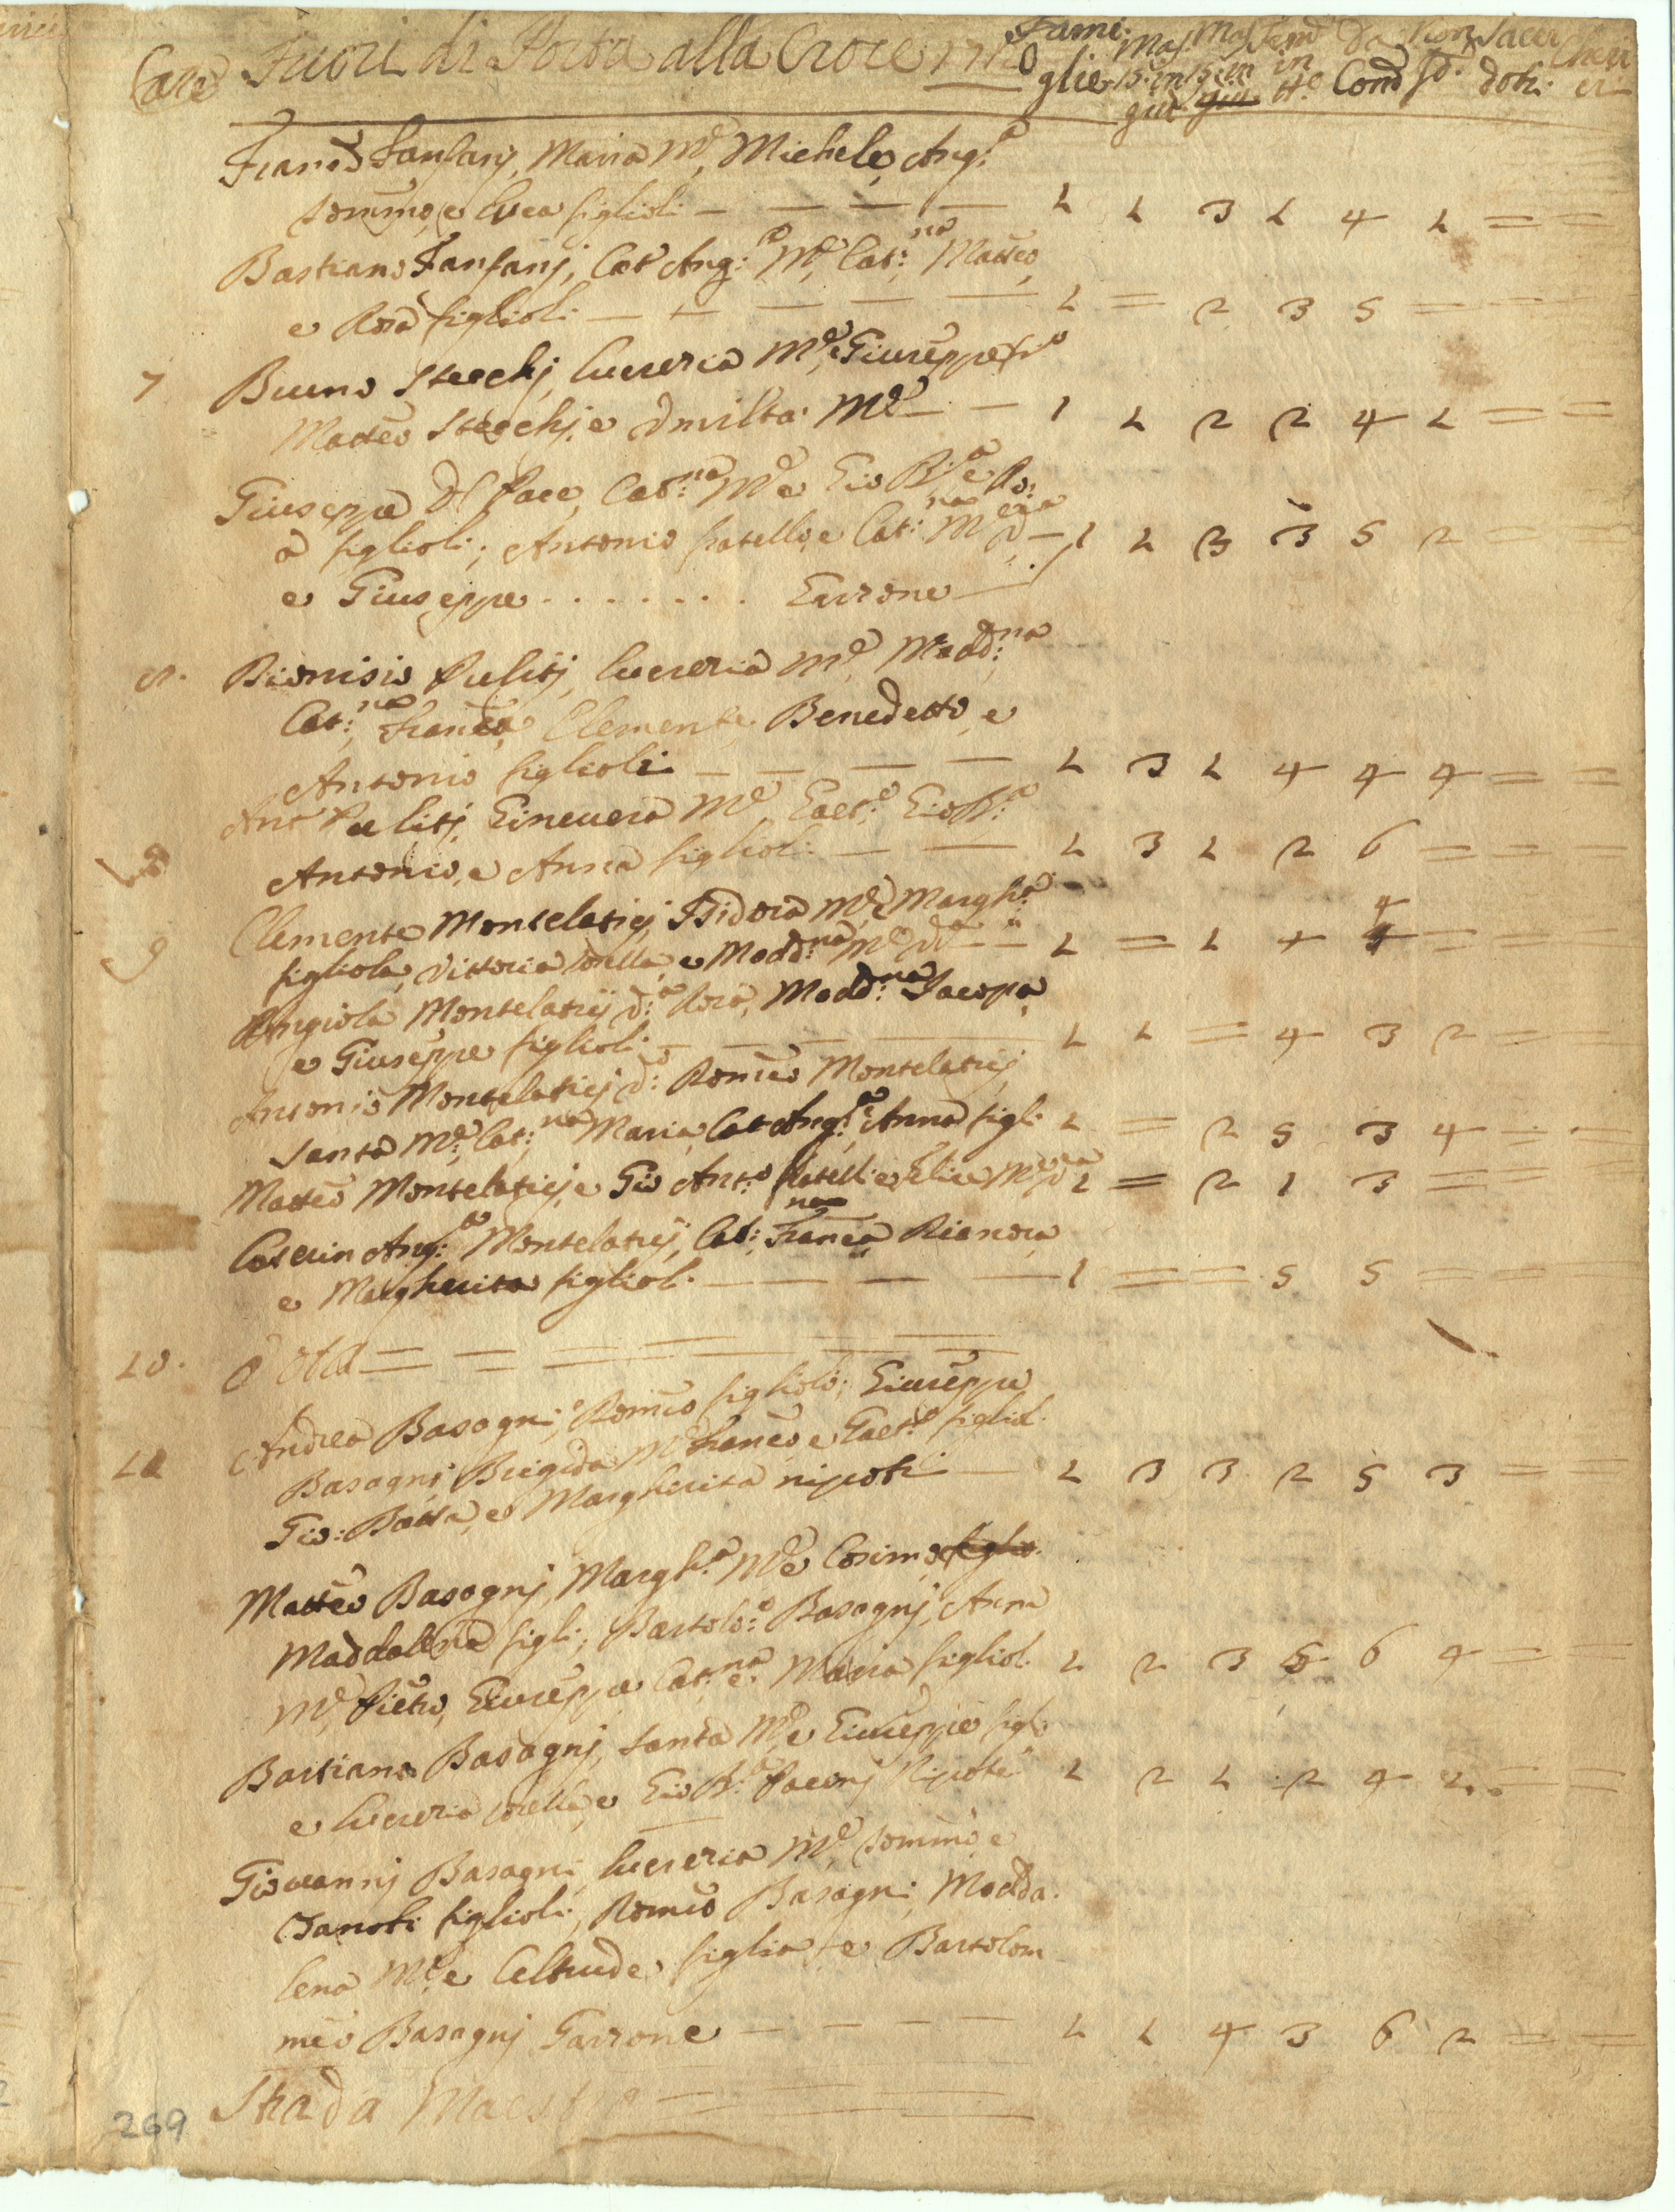 Case Fuori di Porta alla Croce 1710 Fami: glie
Masc: Masc: Fem: Da Non Sacer Cheri
15. in 15. in in Com. doti: ci
giù giù tto
Franco Fanfanj, Maria Me, Michele, Ang:a
Tommo, e Luca figlioli — — — — 1 1 3 1 4 1 = =
Bastiano Fanfanj, Cat Ang:a Me, Cat:na Matteo,
e Rosa figlioli — — — — — 1 = 2 3 5 = =
7 Bruno Stecchj, Lucrezia Me, Giuseppe fio
Matteo Stecchj, e Dmilta Me — — 1 1 2 2 4 1 = =
Giuseppe del Pace, Cat:na Me e Gio B:a e Ro:
a figlioli; Antonio fratello, e Cat:na M — 1 1 3 3 5 2 = =
e Giuseppe . . . . . . . Garzone —
8. Dionisio Pulitj, Lucrezia Me, Madd:na
Cat:na, Franca, Clemente, Benedetto, e
Antonio figlioli — — — — 1 3 1 4 4 4 = =
Anto Pulitj, Gineuera Me, Gaet:o, Gio B:a
Antonio, e Anna figlioli — — 1 3 1 2 6 = = =
4
9 Clemente Montelaticj, Isidora Me, Margh:a
figliola, Vittoria sorella, e Madd:na Me da — 1 = 1 4 4 = = =
Angiola Montelaticj Va:, Rosa, Madd:na Iacopa,
e Giuseppe figlioli — — — — 1 1 = 4 3 2 = =
Antonio Montelaticj do: Romeo Montelaticj
Santa Me, Cat:na Maria, Cat Ang:a, Anna figli 1 = 2 5 3 4 = =
Matteo Montelaticj, e Gio Anto: fratelli e 1 = 2 1 3 = = =
Caterin Ang:a Montelaticj, Cat:na Franca, Rienora
e Margherita figliol: — — — — 1 = = 5 5 = = =
10. Ôota = = = = = =
11 Andrea Basagni, Romeo figliolo; Giuseppe
Basagnj, Brigida Me Franco, e Gaet:o figliol:
Gio: Batta, e Margherita nipoti — 1 3 3 2 5 3 = =
Matteo Basagnj, Margh:a Me e Cosimo figlio.
Maddalena figli:, Bartolo:o Basagnj, Anna
Me, Pietro, Giuseppe Cat:na e Maria figliol: 1 2 3 5 6 4 = =
Bastiano Basagnj, Santa Me e Giuseppe figl:o
e Lucrezia sorella, e Gio B:a Paconj Nipote 1 2 1 2 4 1. = =
Giovannj Basagni, Lucrezia Me, Tommo, e
Santi figlioli, Romeo Basagni, Madda.
lena Me e Celtrude figlia, e Bartolom
meo Basagnj Garzone — — — — 1 1 4 3 6 2 = =
Strada Maestra = = =
269